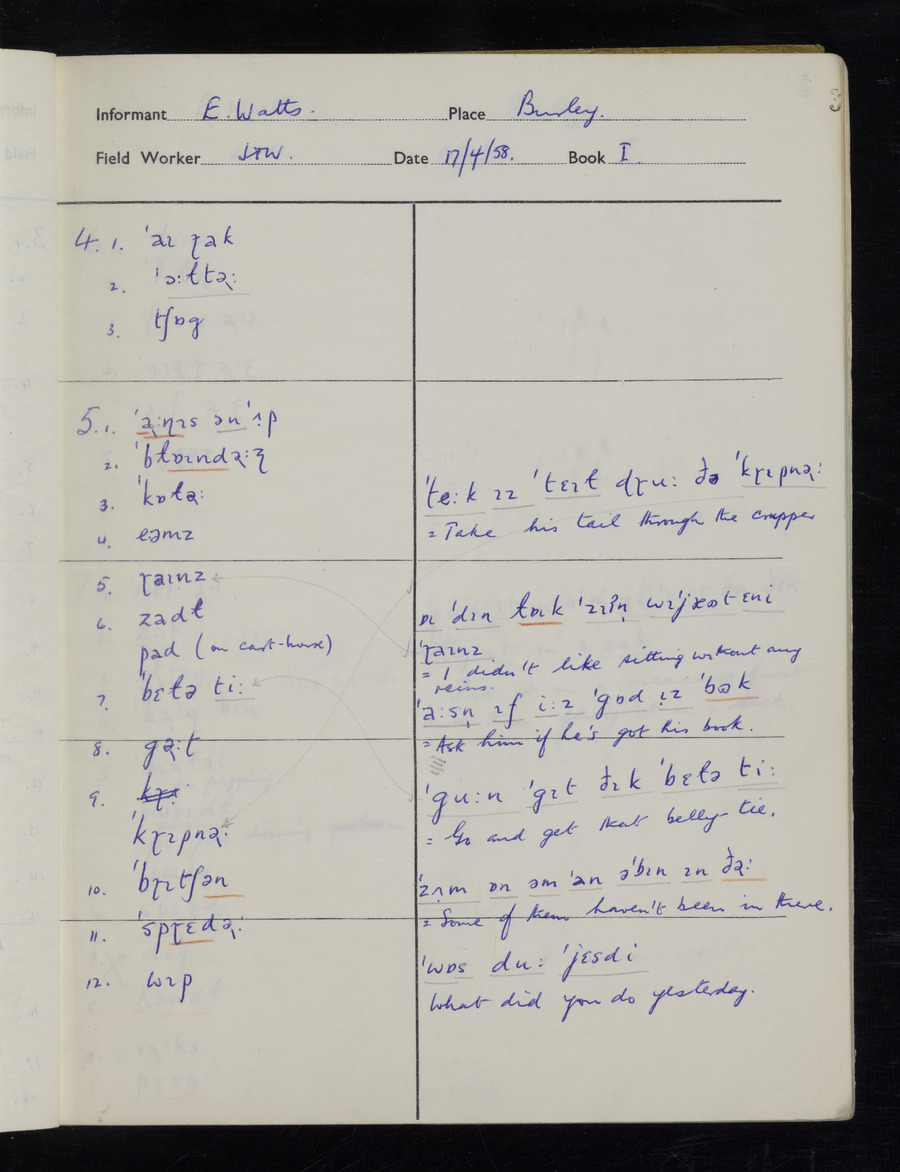 Informant E. Watts. Place Burley.
Field Worker JTW. Date 17/4/58. Book I.
4. 1. ˈaɪ ɽak
2. ˈɔ:ltə˞:
3. tʃɒg
5. 1. ˈa˞:ɳɪs ənˈɪp
2. ˈblɒɪndə˞:ʐ
3. ˈkɒlə˞:
4. eəmz
5. ɽaɪnz
6. zadl
pad (on cart-horse)
7. ˈbɛlə ti:
8. gə˞:t
9.
ˈkɽɪpnə˞:
10. ˈbɽɪtʃən
11. ˈspɽɛdə˞:
12. wɪp
ˈte:k ɪz ˈtɛɪl dɽu: ðə ˈkɽɪpnə˞:
= Take his tail through the crupper
ɒɪ ˈdɪn lɒɪk ˈzɪʔn̩
ˈɽaɪnz
= I didn't like sitting without any
reins.
ˈa:sn̩ ɪf i:z ˈgɒd ɪz ˈbʊk
= Ask him if he's got his book.
ˈgu:n ˈgɪt ðɪk ˈbɛlə ti:
= Go and get that belly-tie.
ˈzʌm ɒn əm ˈan əˈbɪn ɪn ðə˞:
= Some of them haven't been in there.
ˈwɒs du: ˈjɛsdi
What did you do yesterday.